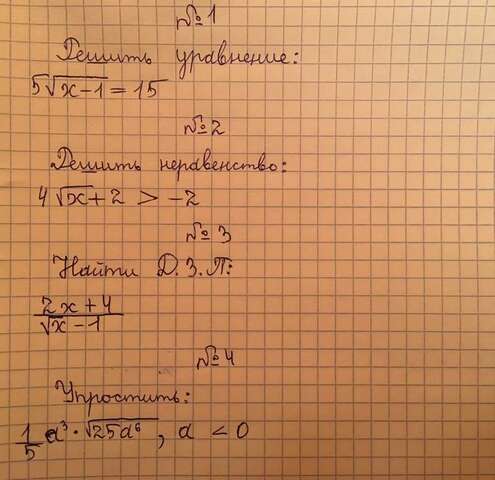 №1
Решить уравнение:
5√(x-1) = 15
№2
Решить неравенство:
4√x + 2 > -2
№3
Найти Д.З.П:
(2x+4)/(√x - 1)
№4
Упростить:
1/5 a³ · √(25a⁶), a < 0